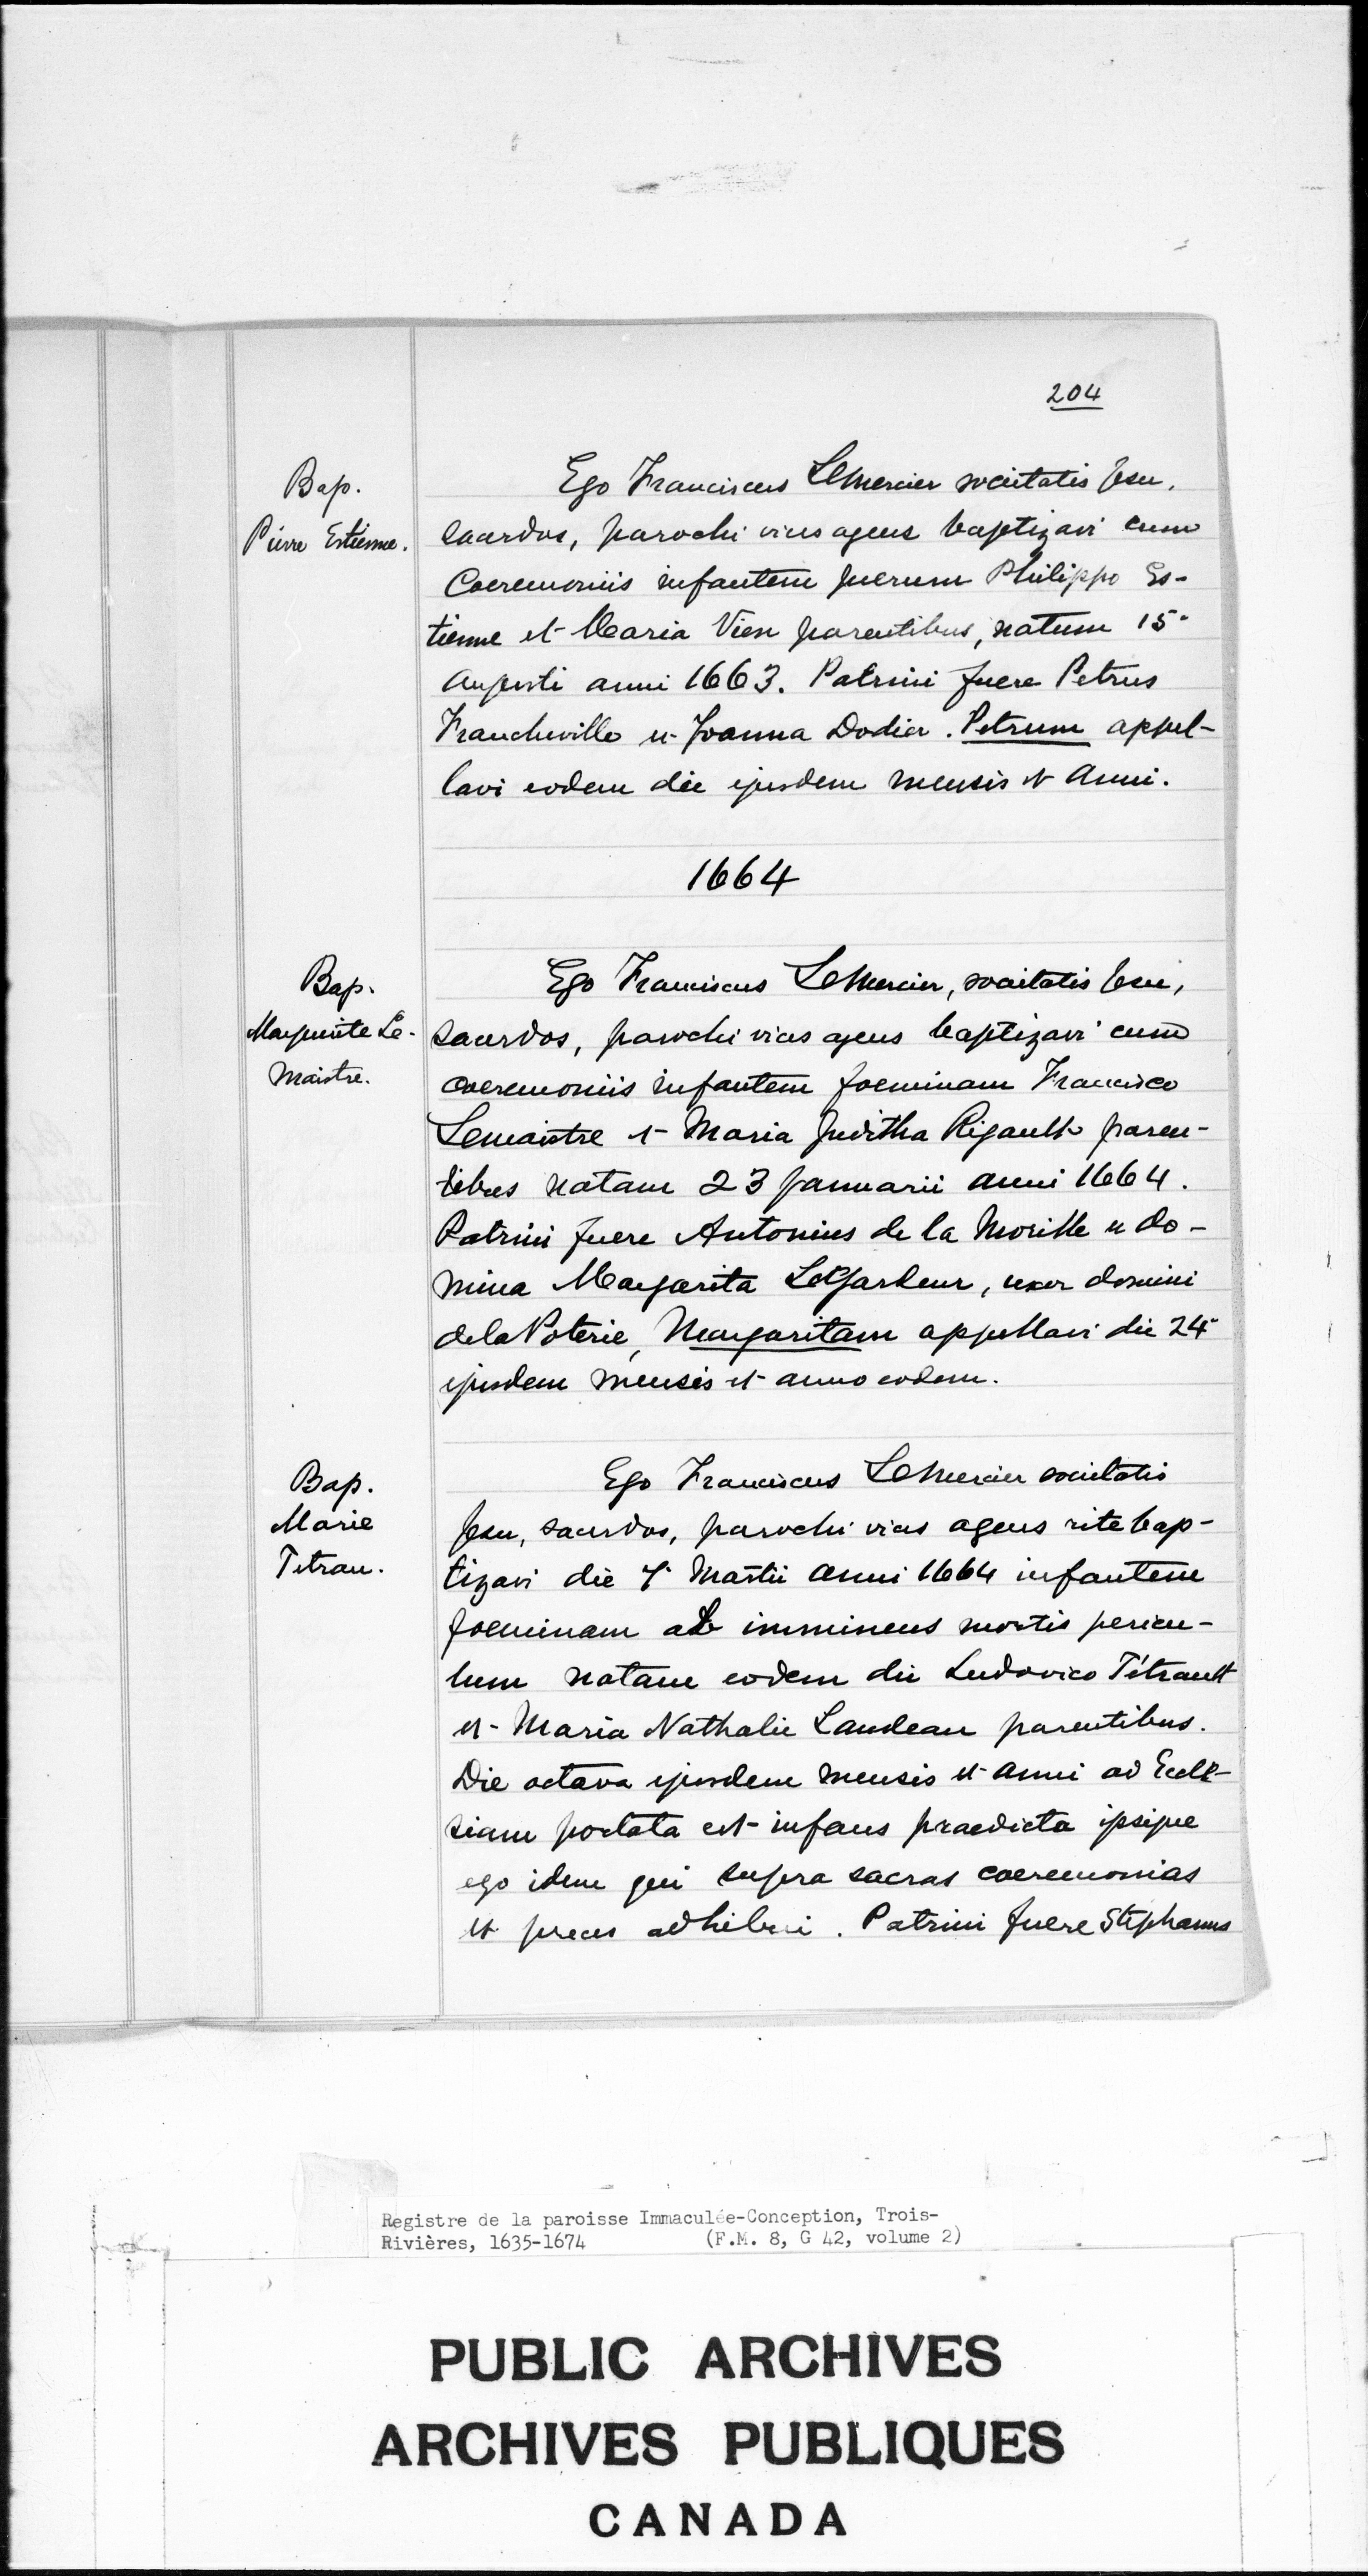 204
Bap.
Pierre Estienne.
Ego Franciscus LeMercier societatis Jesu,
sacerdos, parochi vices agens baptizavi cum
Coeremoniis infantem puerum Philippo Es-
tienne et Maria Vien parentibus, natum 15a
Augusti anni 1663. Patrini fuere Petrus
Francheville et Joanna Dodier. Petrum appel-
lavi eodem die ejusdem mensis et anni.
1664
Bap.
Marguerite Le-
Maistre.
Ego Franciscus LeMercier, societatis Jesu,
sacerdos, parochi vices agens baptizavi cum
coeremoniis infantem foeminam Francisco
Lemaistre et Maria Juditha Rigault paren-
tibus natam 23 Januarii anni 1664.
Patrini fuere Antonius de la Morille et do-
mina Margarita LeGardeur, uxor domini
de la Poterie, Margaritam appellavi die 24a
ejusdem mensis et anno eodem.
Bap.
Marie
Tetrau.
Ego Franciscus LeMercier societatis
Jesu, sacerdos, parochi vices agens rite bap-
tizavi die 7a Martii anni 1664 infantem
foeminam ab imminens mortis pericu-
lum natam eodem die Ludovico Tétrault
et Maria Nathalie Landeau parentibus.
Die octava ejusdem mensis et anni ad Eccle-
siam portata est infans praedicta ipsique
ego idem qui supra sacras coeremonias
et preces adhibui. Patrini fuere Stephanus
Registre de la paroisse Immaculée-Conception, Trois-
Rivières, 1635-1674 (F.M. 8, G 42, volume 2)
PUBLIC ARCHIVES
ARCHIVES PUBLIQUES
CANADA